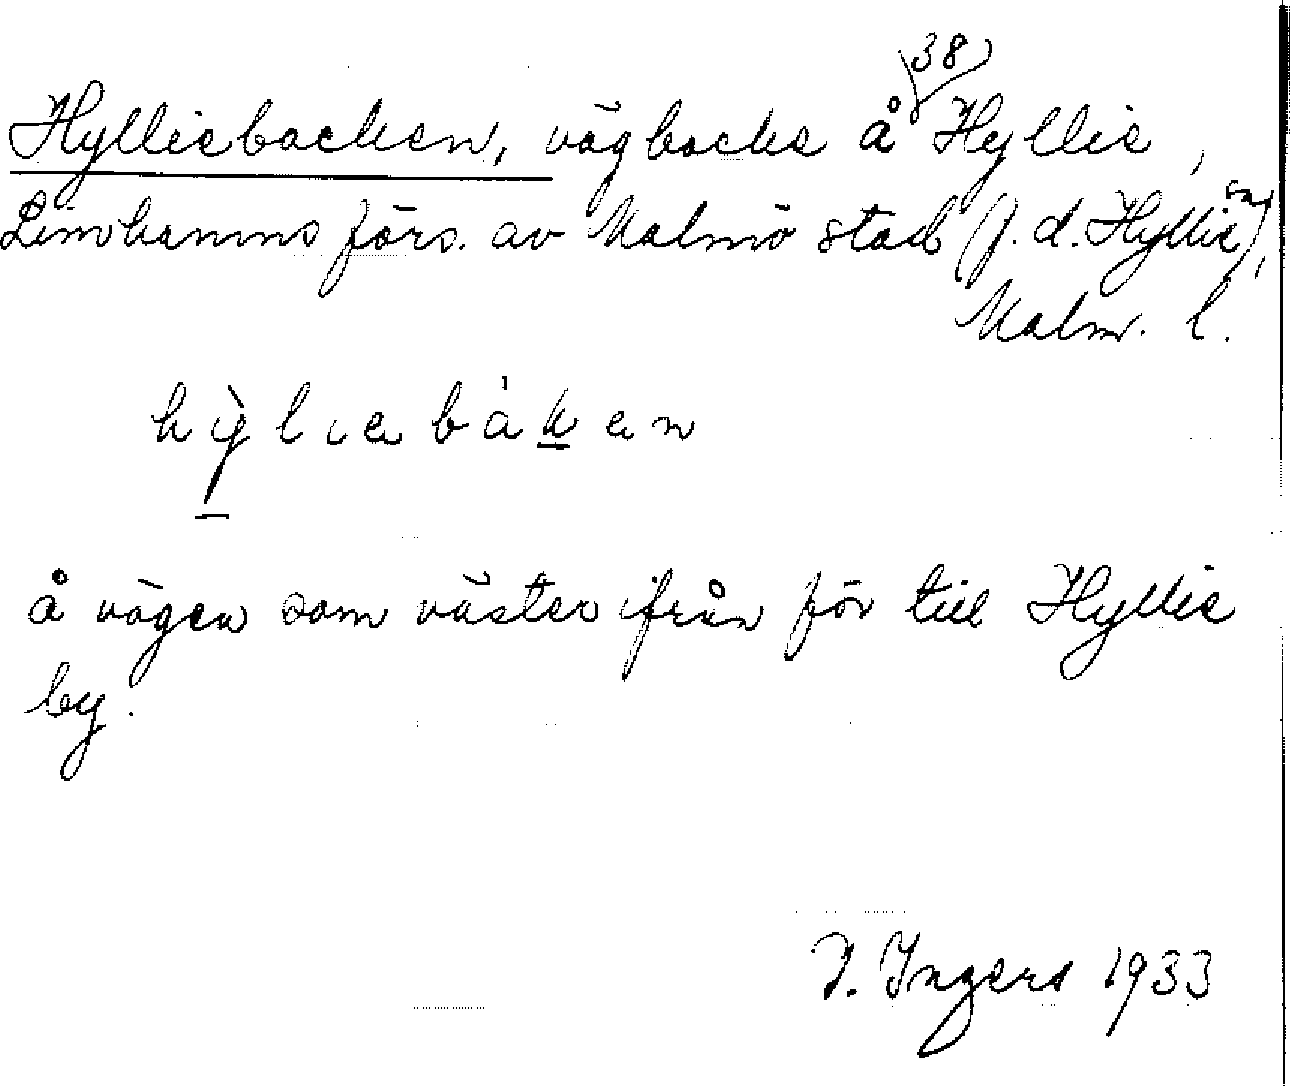 38)
Hylliebacken, vägbacke å Hyllie,
Limhamns förs. av Malmö stad (f. d. Hyllie sn),
Malm. l.
hỳliebáken
å vägen som väster ifrån för till Hyllie
by.
I. Ingers 1933